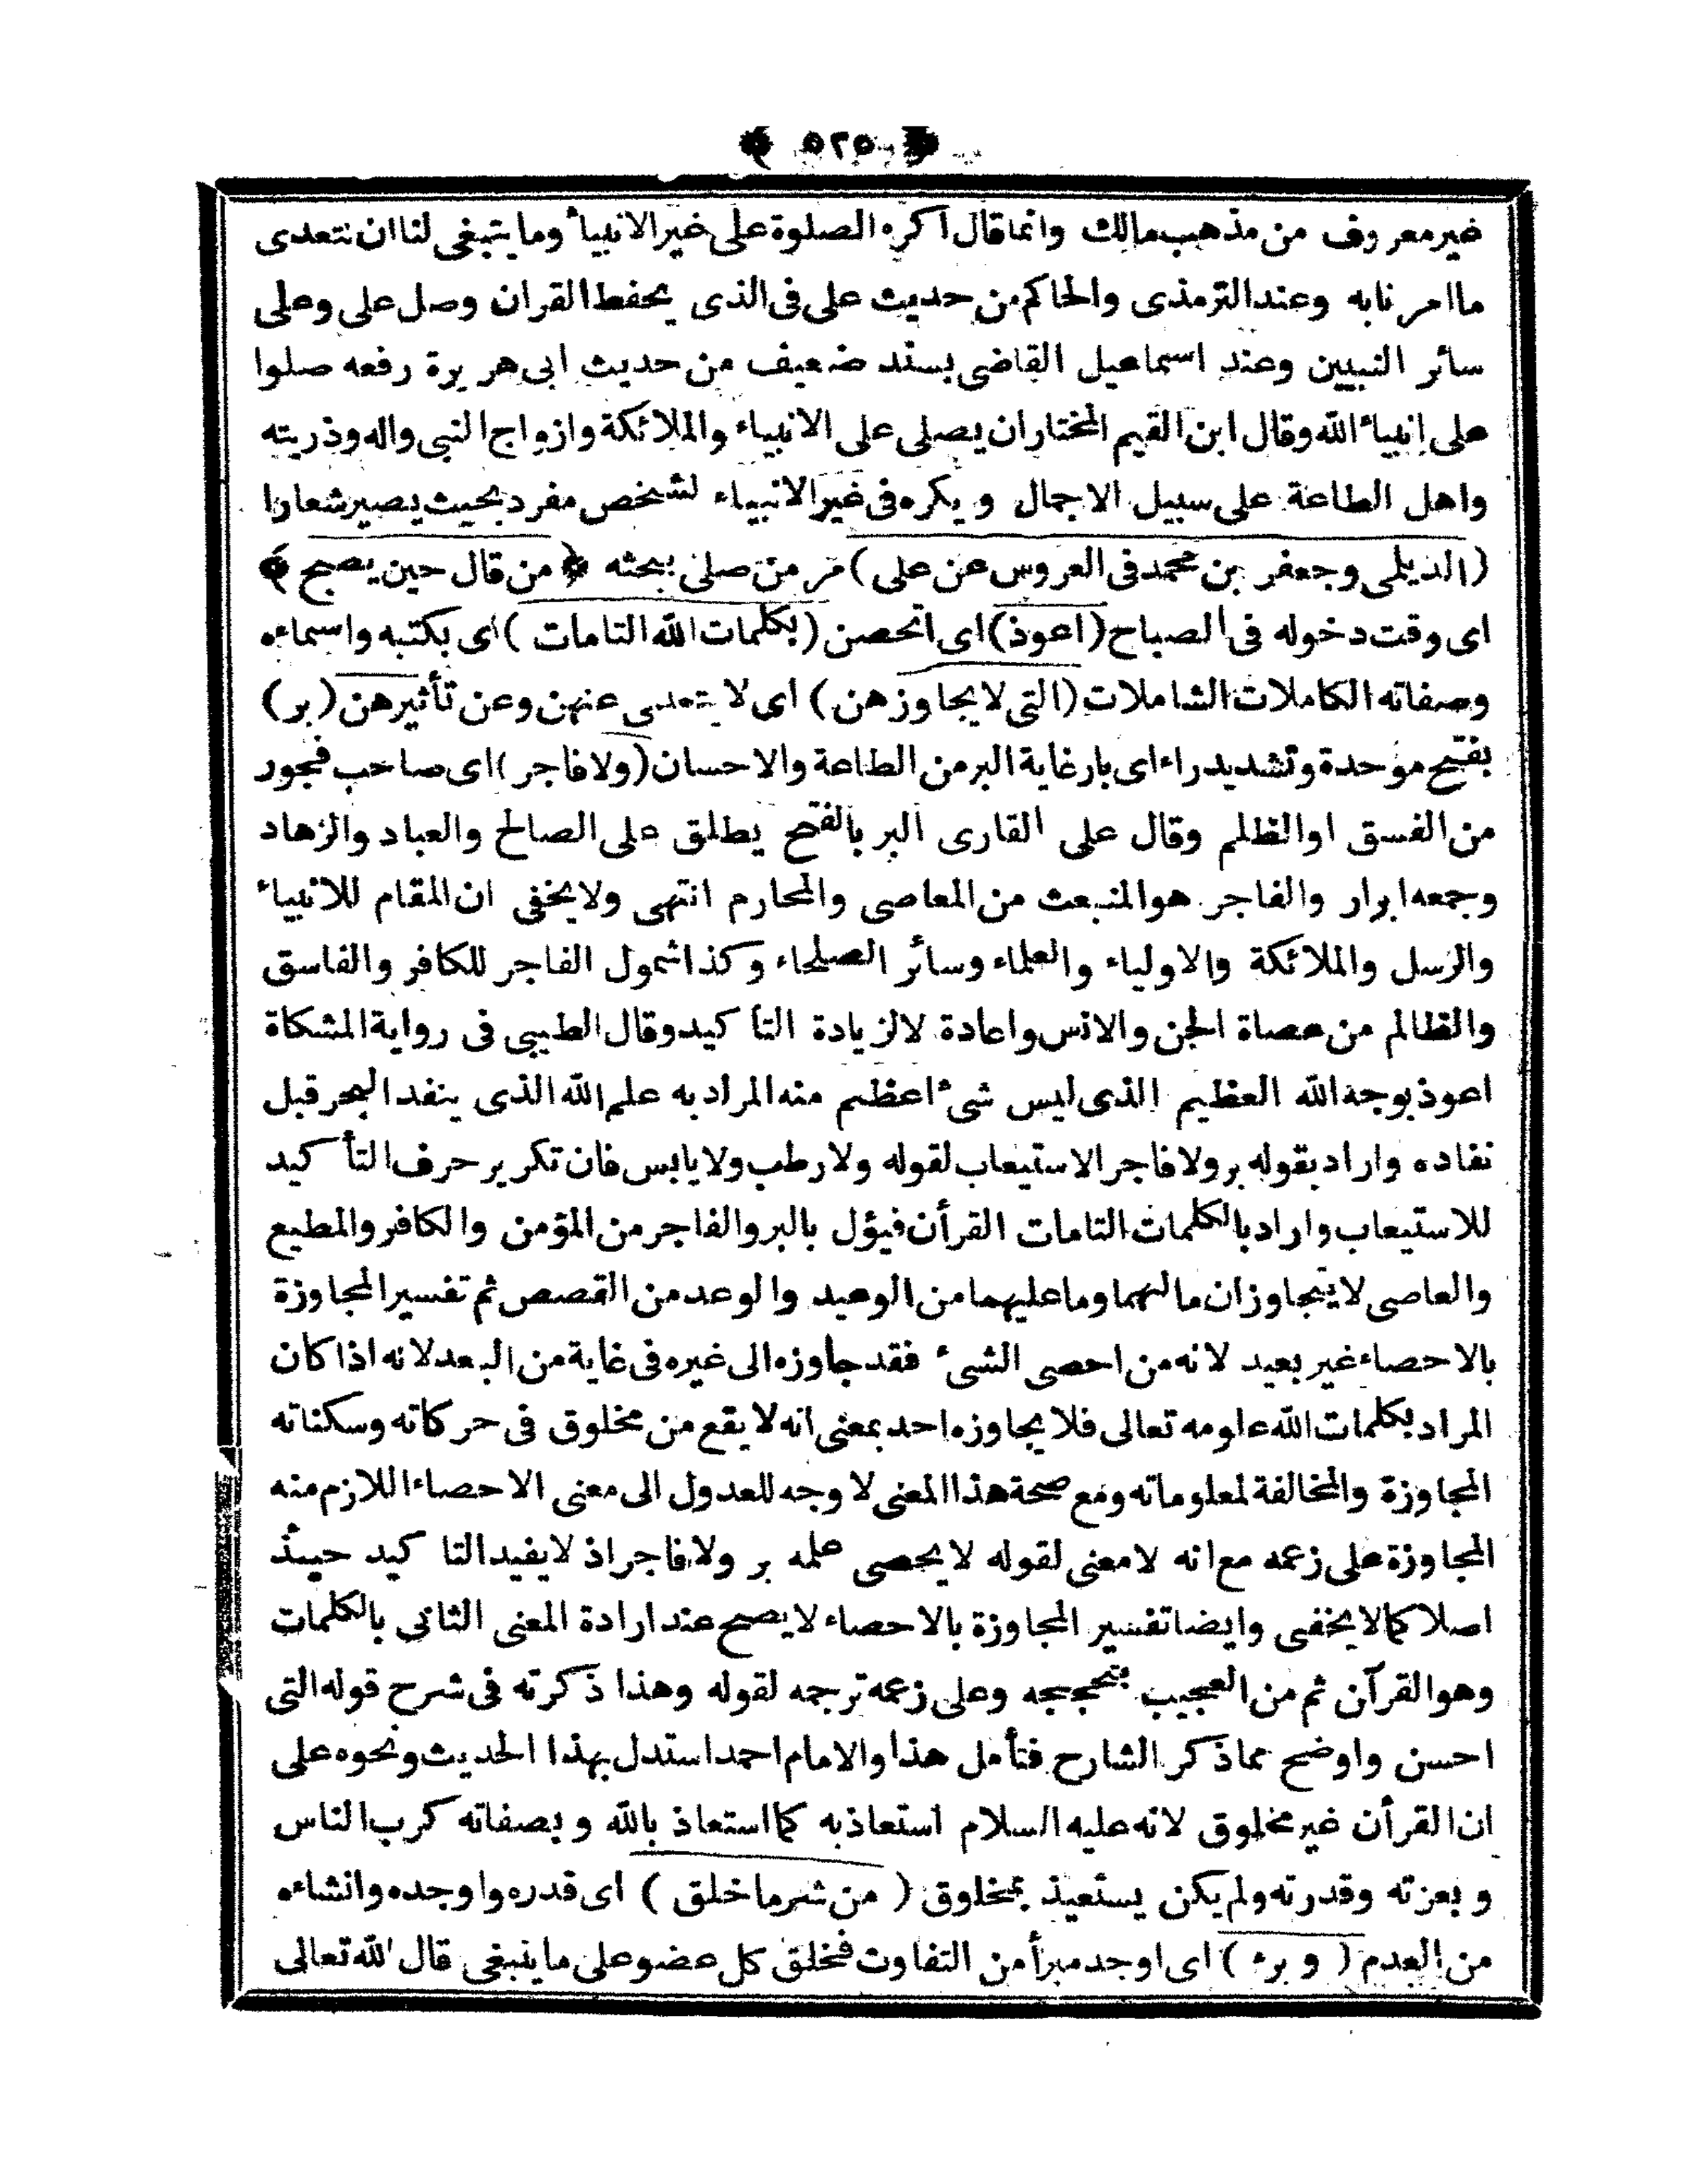 ﴿ ٥٢٥ ﴾
غير معروف من مذهب مالك وانما قال اكره الصلوة على غير الانبياء وما ينبغى لنا ان نتعدى
ما امرنا به وعند الترمذى والحاكم من حديث على فى الذى يحفظ القران وصل على وعلى
سائر النبيين وعند اسماعيل القاضى بسند ضعيف من حديث ابى هريرة رفعه صلوا
على انبياء الله وقال ابن القيم المختار ان يصلى على الانبياء والملائكة وازواج النبى واله وذريته
واهل الطاعة على سبيل الاجمال ويكره فى غير الانبياء لشخص مفرد بحيث يصير شعارا
(الديلمى وجعفر بن محمد فى العروس عن على) مر من صلى بحثه ﴿ من قال حين يصبح ﴾
اى وقت دخوله فى الصباح (اعوذ) اى اتحصن (بكلمات الله التامات) اى بكتبه واسماءه
وصفاته الكاملات الشاملات (التى لا يجاوزهن) اى لا يتعدى عنهن وعن تأثيرهن (بر)
بفتح موحدة وتشديد راء اى بار غاية البر من الطاعة والاحسان (ولا فاجر) اى صاحب فجور
من الفسق او الظلم وقال على القارى البر بالفتح يطلق على الصالح والعباد والزهاد
وجمعه ابرار والفاجر هو المنبعث من المعاصى والمحارم انتهى ولا يخفى ان المقام للانبياء
والرسل والملائكة والاولياء والعلماء وسائر الصلحاء وكذا شمول الفاجر للكافر والفاسق
والظالم من عصاة الجن والانس واعادة لا لزيادة التأكيد وقال الطيبى فى رواية المشكاة
اعوذ بوجه الله العظيم الذى ليس شىء اعظم منه المراد به علم الله الذى ينفد البحر قبل
نفاده واراد بقوله بر ولا فاجر الاستيعاب لقوله ولا رطب ولا يابس فان تكرير حرف التأكيد
للاستيعاب واراد بالكلمات التامات القرأن فيؤل بالبر والفاجر من المؤمن والكافر والمطيع
والعاصى لا يتجاوزان ما لهما وما عليهما من الوعيد والوعد من القصص ثم تفسير المجاوزة
بالاحصاء غير بعيد لانه من احصى الشىء فقد جاوزه الى غيره فى غاية من البعد لانه اذا كان
المراد بكلمات الله علومه تعالى فلا يجاوزه احد بمعنى انه لا يقع من مخلوق فى حركاته وسكناته
المجاوزة والمخالفة لمعلوماته ومع صحة هذا المعنى لا وجه للعدول الى معنى الاحصاء اللازم منه
المجاوزة على زعمه مع انه لا معنى لقوله لا يحصى علمه بر ولا فاجر اذ لا يفيد التاكيد حينئذ
اصلا كما لا يخفى وايضا تفسير المجاوزة بالاحصاء لا يصح عند ارادة المعنى الثانى بالكلمات
وهو القرآن ثم من العجيب وعلى زعمه ترجمه لقوله وهذا ذكرته فى شرح قوله التى
احسن واوضح مما ذكر الشارح فتأمل هذا والامام احمد استدل بهذا الحديث ونحوه على
ان القرأن غير مخلوق لانه عليه السلام استعاذ به كما استعاذ بالله وبصفاته كرب الناس
وبعزته وقدرته ولم يكن يستعيذ بمخلوق (من شر ما خلق) اى قدره واوجده وانشاءه
من العدم (وبرء) اى اوجد مبرأ من التفاوت فخلق كل عضو على ما ينبغى قال الله تعالى